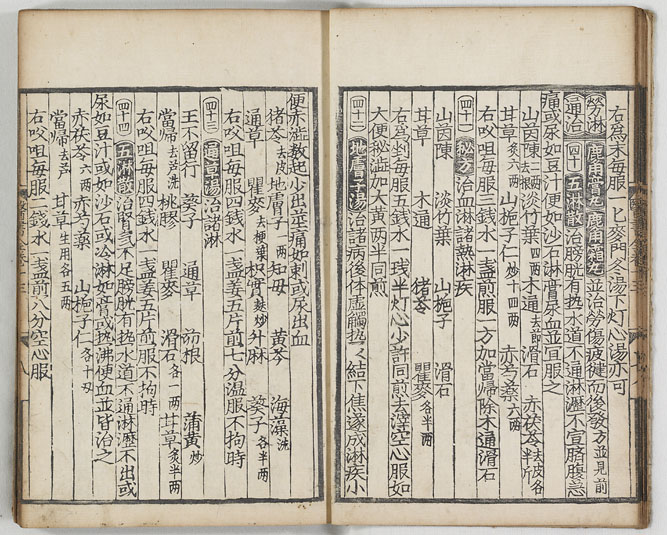 右為末每服一匕麥門冬湯下灯心湯亦可
勞淋 鹿角霜丸鹿角霜丸並治勞傷疲徤而後發方並見前
通治 四十 五淋散治膀胱有热水道不通淋瀝不宣臍腹急
痛或尿如豆汁便如沙石淋膏尿血並宜服之
山茵陳二两去根 淡竹葉四两 木通去節 滑石 赤茯苓去皮各半斤
甘草炙六两 山梔子仁炒十四两 赤芍藥六两
右㕮咀每服三銭水一盞煎服一方加當帰除木通滑石
四十一 秘方治血淋諸熱淋疾
山茵陳 淡竹葉 山梔子 滑石
甘草 木通 猪苓 瞿麥各半两
右為剉每服五銭水一盞半灯心少許同煎去滓空心服如
大便秘澁加大黃两半同煎
四十二 地膚子湯治諸病後体虛觸热〻結下焦遂成淋疾小
便赤澁数起少出並痛如刺或尿出血
猪苓去皮 地膚子 知母 黃芩 海藻洗
通草 瞿麥去梗 枳實麩炒 升麻 葵子各半两
右㕮咀每服四銭水一盞姜五片前七分温服不拘時
四十三 通草湯治諸淋
王不留行 葵子 通草 茆根 蒲黃炒
當帰去芦洗 桃膠 瞿麥 滑石各一两 甘草炙半两
右㕮咀每服四銭水一盞姜五片前服不拘時
四十四 五淋散治腎氣不足膀胱有热水道不通淋瀝不出或
尿如豆汁或如沙石或冷淋如膏或热沸便血並皆治之
赤茯苓六两 赤芍藥 山梔子仁各十两
當帰去芦 甘草生用各五两
右㕮咀每服二銭水一盞前八分空心服